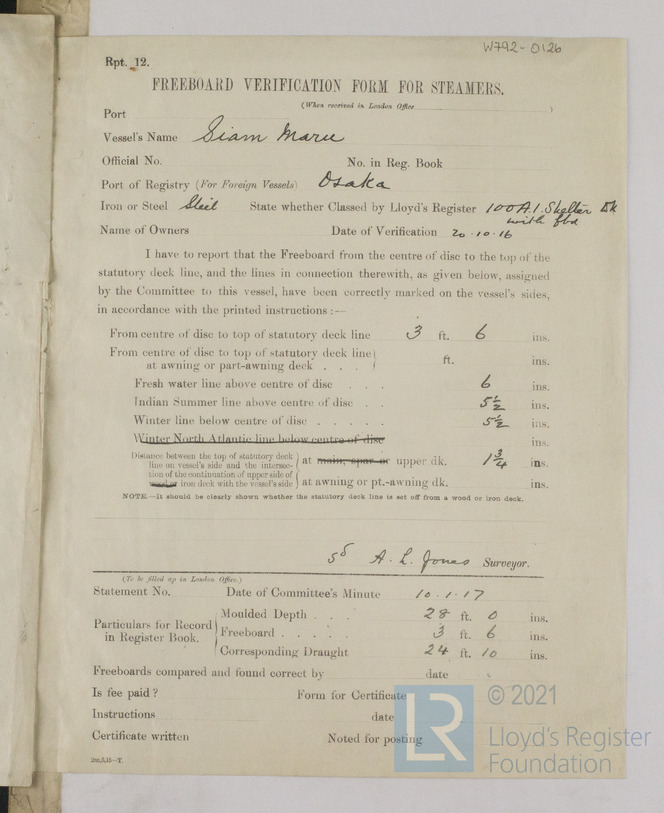 W792-0126
Rpt. 12.
FREEBOARD VERIFICATION FORM FOR STEAMERS.
(When received in London Office )
Port
Vessel's Name Siam Maru
Official No. No. in Reg. Book
Port of Registry (For Foreign Vessels) Osaka
Iron or Steel Steel State whether Classed by Lloyd's Register 100A.1. Shelter Dk
with fbd
Name of Owners Date of Verification 20.10.16
I have to report that the Freeboard from the centre of disc to the top of the
statutory deck line, and the lines in connection therewith, as given below, assigned
by the Committee to this vessel, have been correctly marked on the vessel's sides,
in accordance with the printed instructions :—
From centre of disc to top of statutory deck line 3 ft. 6 ins.
From centre of disc to top of statutory deck line
at awning or part-awning deck . . . ft. ins.
Fresh water line above centre of disc . . . 6 ins.
Indian Summer line above centre of disc . . 5½ ins.
Winter line below centre of disc . . . . . 5½ ins.
Winter North Atlantic line below centre of disc ins.
Distance between the top of statutory deck
line on vessel's side and the intersec-
tion of the continuation of upper side of
iron deck with the vessel's side
at main, spar or upper dk. 1¾ ins.
at awning or pt.-awning dk. ins.
NOTE.—It should be clearly shown whether the statutory deck line is set off from a wood or iron deck.
sd A. L. Jones Surveyor.
(To be filled up in London Office.)
Statement No. Date of Committee's Minute 10.1.17
Particulars for Record
in Register Book.
Moulded Depth . . . 28 ft. 0 ins.
Freeboard . . . . . 3 ft. 6
Corresponding Draught 24 ft. 10 ins.
Freeboards compared and found correct by date
Is fee paid ? Form for Certificate
Instructions date
Certificate written Noted for posting
2m,5,15—T.
LR
© 2021
Lloyd's Register
Foundation